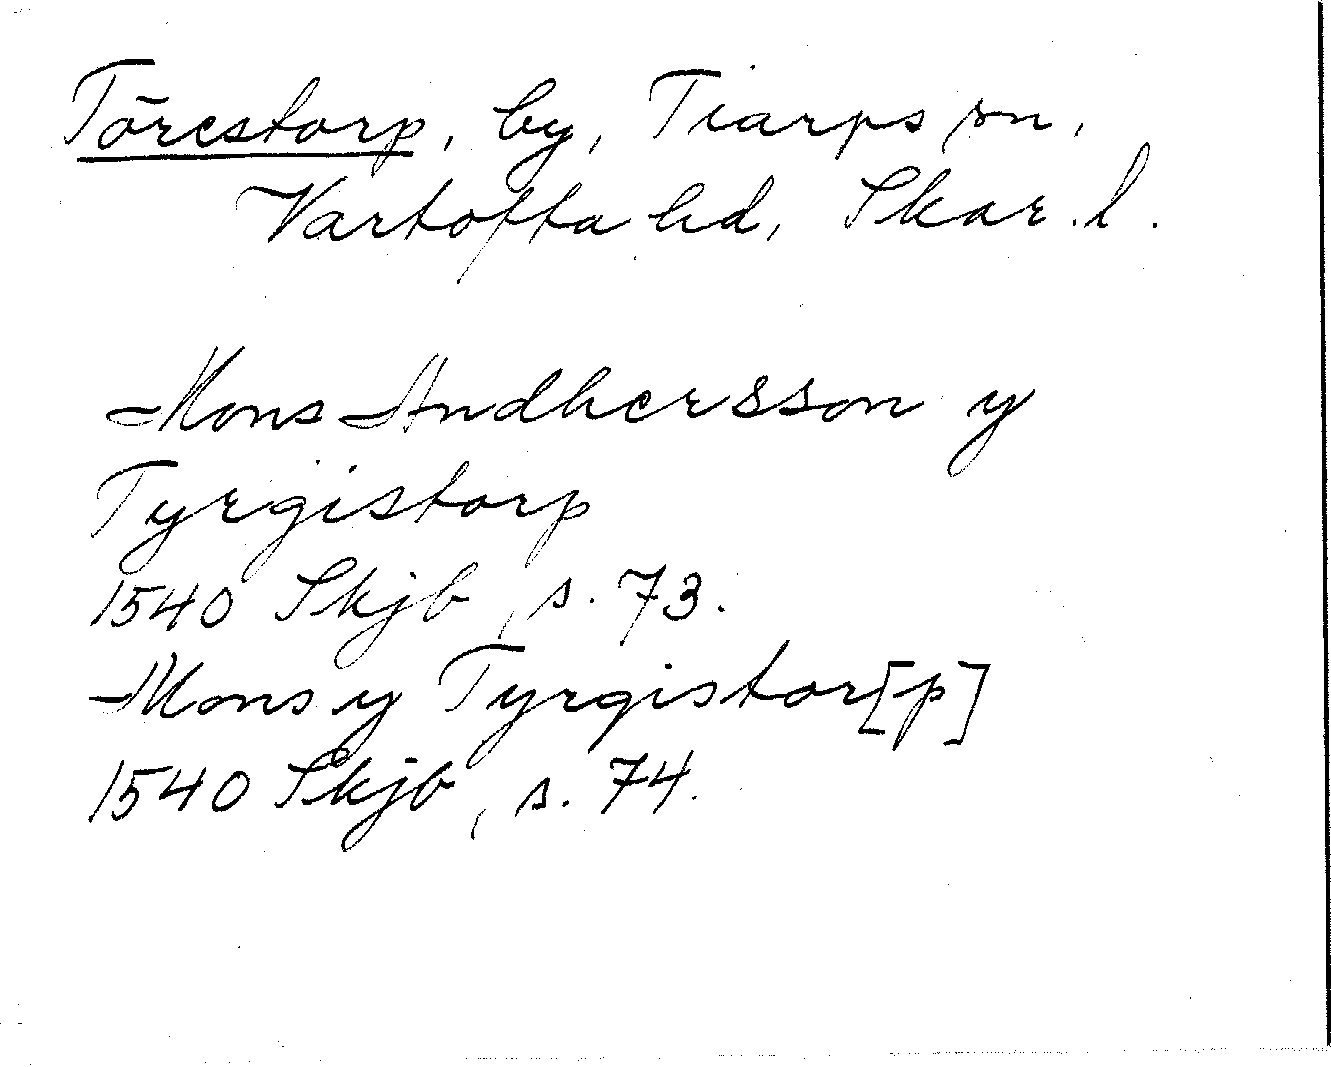 Törestorp, by, Tiarps sn,
Vartofta hd, Skar. l.
Mons Andhersson y
Tyrgistorp
1540 Skjb, s. 73.
Mons y Tyrgistor[p]
1540 Skjb, s. 74.